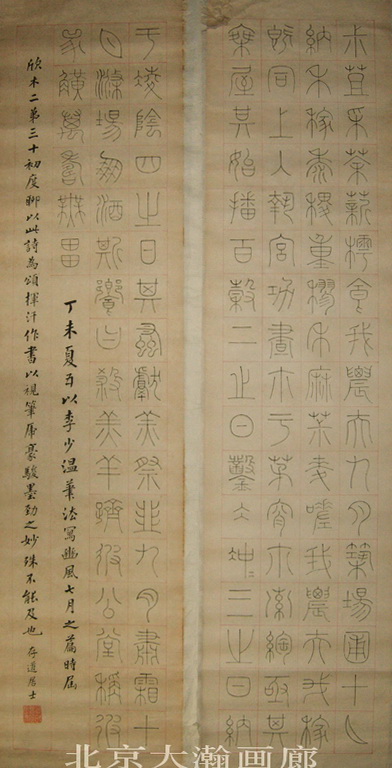 尗苴采荼薪樗食我農夫九月築場圃十月
納禾稼黍稷重穋禾麻尗麥嗟我農夫我稼
既同上入執宮功晝爾于茅宵爾索綯亟其
乘屋其始播百穀二之日鑿冰沖〻三之日納
于凌陰四之日其蚤獻羔祭韭九月肅霜十
月滌場朋酒斯饗曰殺羔羊躋彼公堂稱彼
兕觥萬壽無畺
丁未夏五以李少溫筆法寫豳風七月之篇時屆
欣木二弟三十初度聊以此詩為頌揮汗作書以視筆虎豪駿墨勁之妙殊不能及也 存道居士
北京大瀚画廊